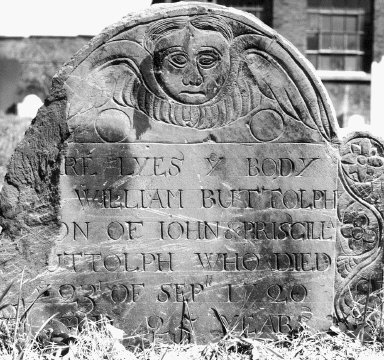 RE LYES Y BODY
WILLIAM BUTTOLPH
ON OF IOHN & PRISCILL
UTTOLPH WHO DIED
23 OF SEP 1 20
YEARS